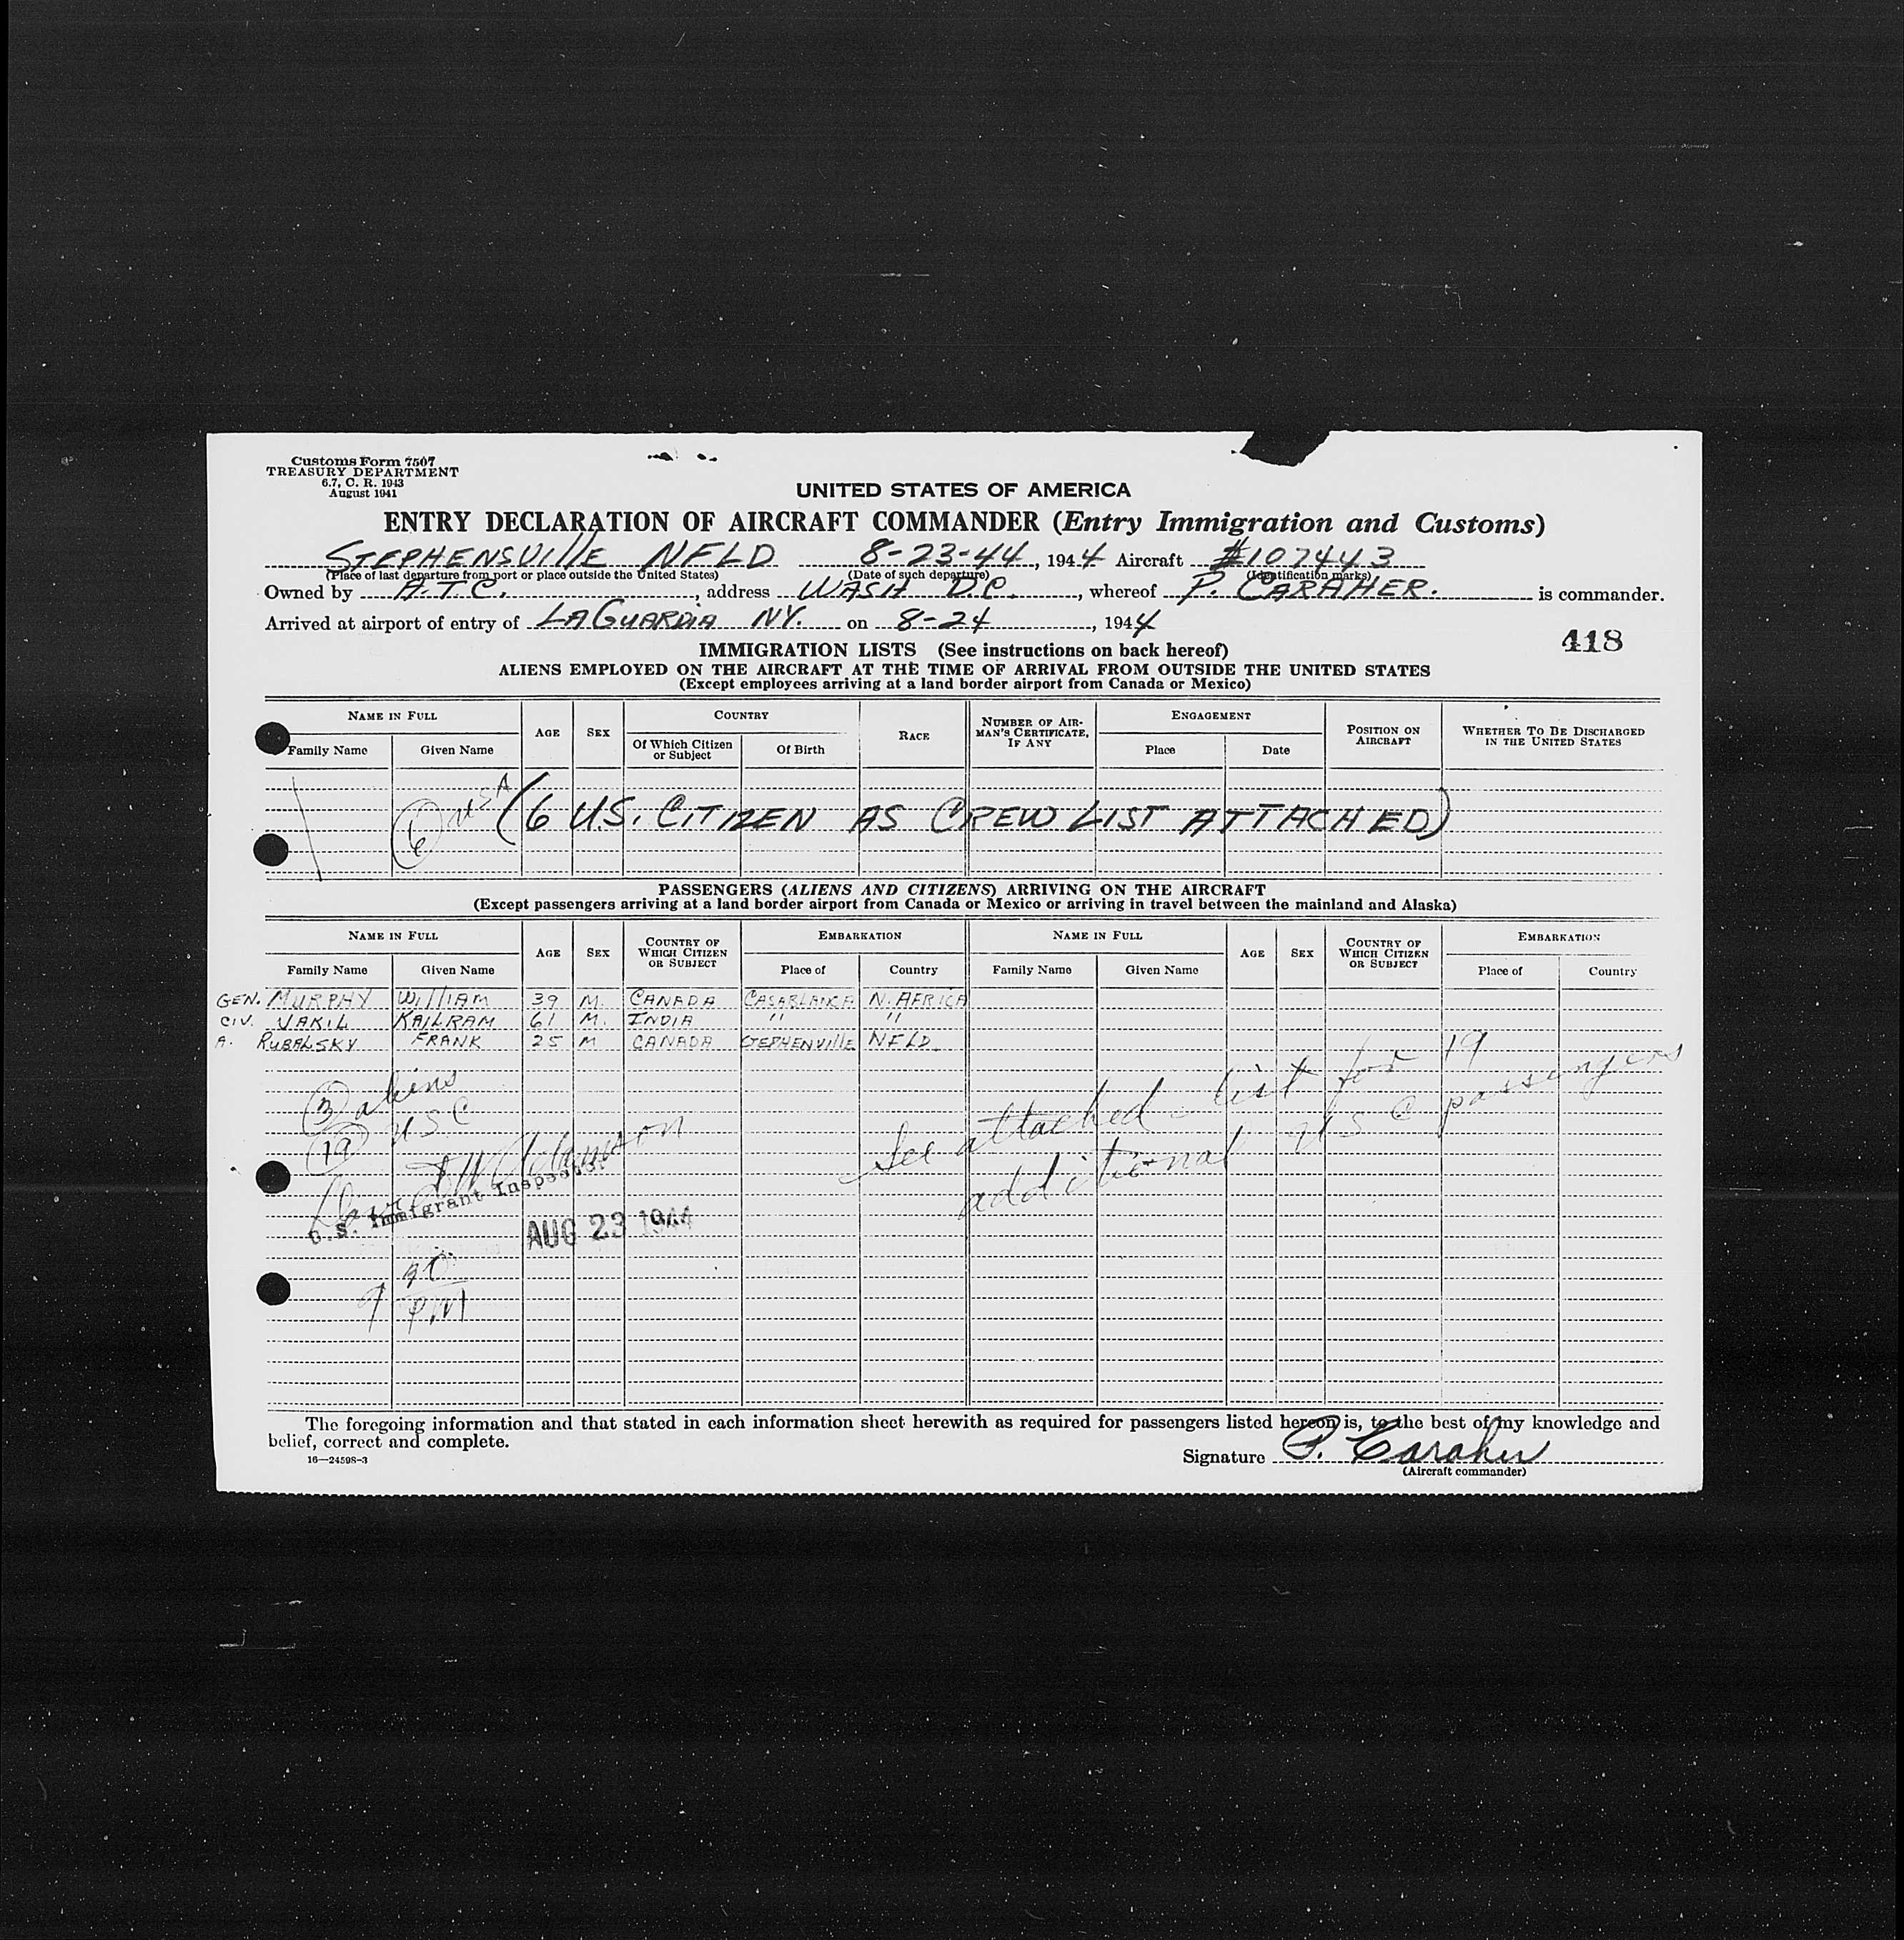 Customs Form 7507
TREASURY DEPARTMENT
6.7, C. R. 1943
August 1941
UNITED STATES OF AMERICA
ENTRY DECLARATION OF AIRCRAFT COMMANDER (Entry Immigration and Customs)
STEPHENSVIllE NFLD 8-23-44, 1944 Aircraft #107443
(Place of last departure from port or place outside the United States) (Date of such departure) (Identification marks)
Owned by A.T.C., address WASH D.C., whereof P. CARAHER. is commander.
Arrived at airport of entry of LAGUARDIA NY. on 8-24, 1944
418
IMMIGRATION LISTS (See instructions on back hereof)
ALIENS EMPLOYED ON THE AIRCRAFT AT THE TIME OF ARRIVAL FROM OUTSIDE THE UNITED STATES
(Except employees arriving at a land border airport from Canada or Mexico)
NAME IN FULL AGE SEX COUNTRY RACE NUMBER OF AIRMAN'S CERTIFICATE, IF ANY ENGAGEMENT POSITION ON AIRCRAFT WHETHER TO BE DISCHARGED IN THE UNITED STATES
Family Name Given Name Of Which Citizen or Subject Of Birth Place Date
6 USA (6 U.S. CITIZEN AS CREW LIST ATTACHED)
PASSENGERS (ALIENS AND CITIZENS) ARRIVING ON THE AIRCRAFT
(Except passengers arriving at a land border airport from Canada or Mexico or arriving in travel between the mainland and Alaska)
NAME IN FULL AGE SEX COUNTRY OF WHICH CITIZEN OR SUBJECT EMBARKATION NAME IN FULL AGE SEX COUNTRY OF WHICH CITIZEN OR SUBJECT EMBARKATION
Family Name Given Name Place of Country Family Name Given Name Place of Country
GEN. MURPHY WILLIAM 39 M. CANADA CASABLANCA N. AFRICA
CIV. VAKIL KAILRAM 61 M. INDIA " "
A. RUBALSKY FRANK 25 M CANADA STEPHENVIllE NFLD.
3 aliens
19 USC
See attached list for 19
additional USC passengers
U.S. Immigrant Inspector
AUG 23 1944
PM
The foregoing information and that stated in each information sheet herewith as required for passengers listed hereon is, to the best of my knowledge and
belief, correct and complete.
16—24598-3
Signature P. Caraher
(Aircraft commander)